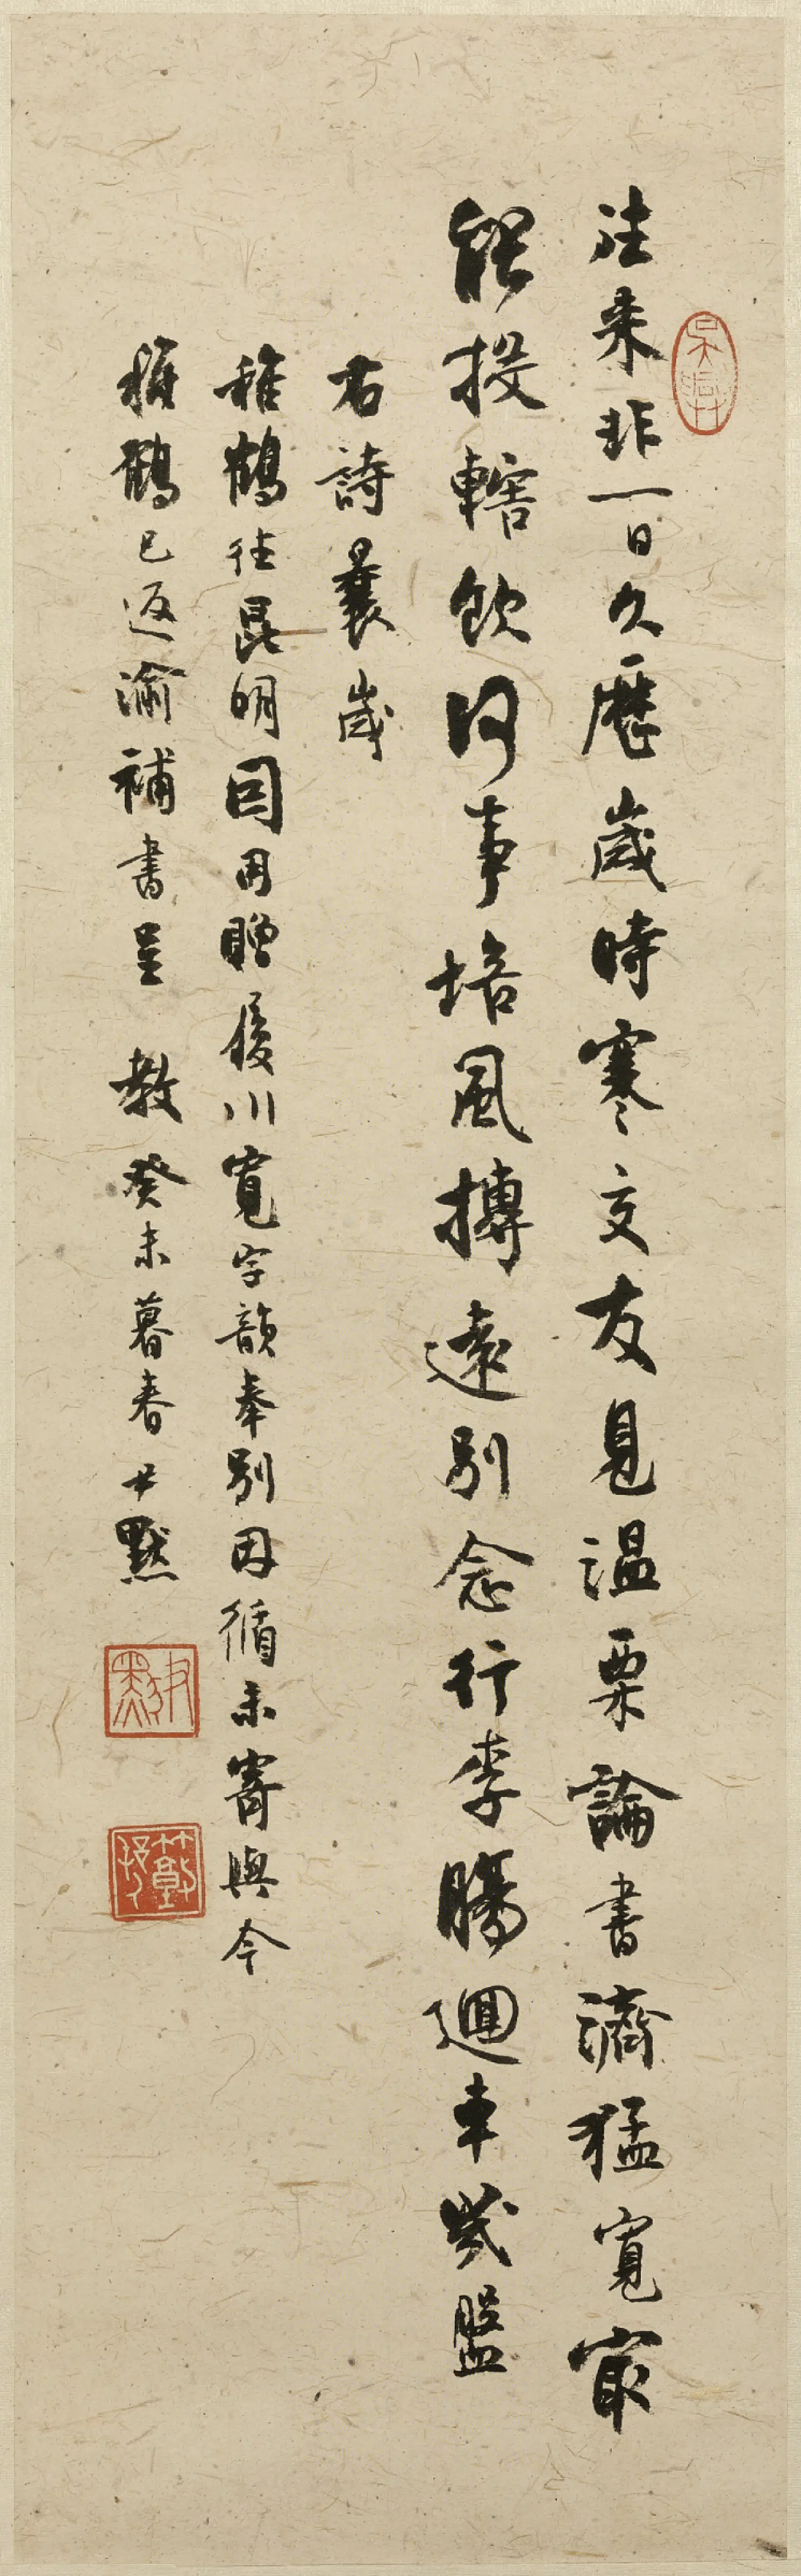 往来非一日久歷歲時寒交友見温栗論書濟猛寬宷
能投轄飲何事培風摶遠別念行李腸迴車幾盤
右詩曩歲
稚鶴往昆明因用贈履川寬字韻奉別因循未寄與今
稚鶴已返渝補書呈 教癸未暮春尹默
吳興